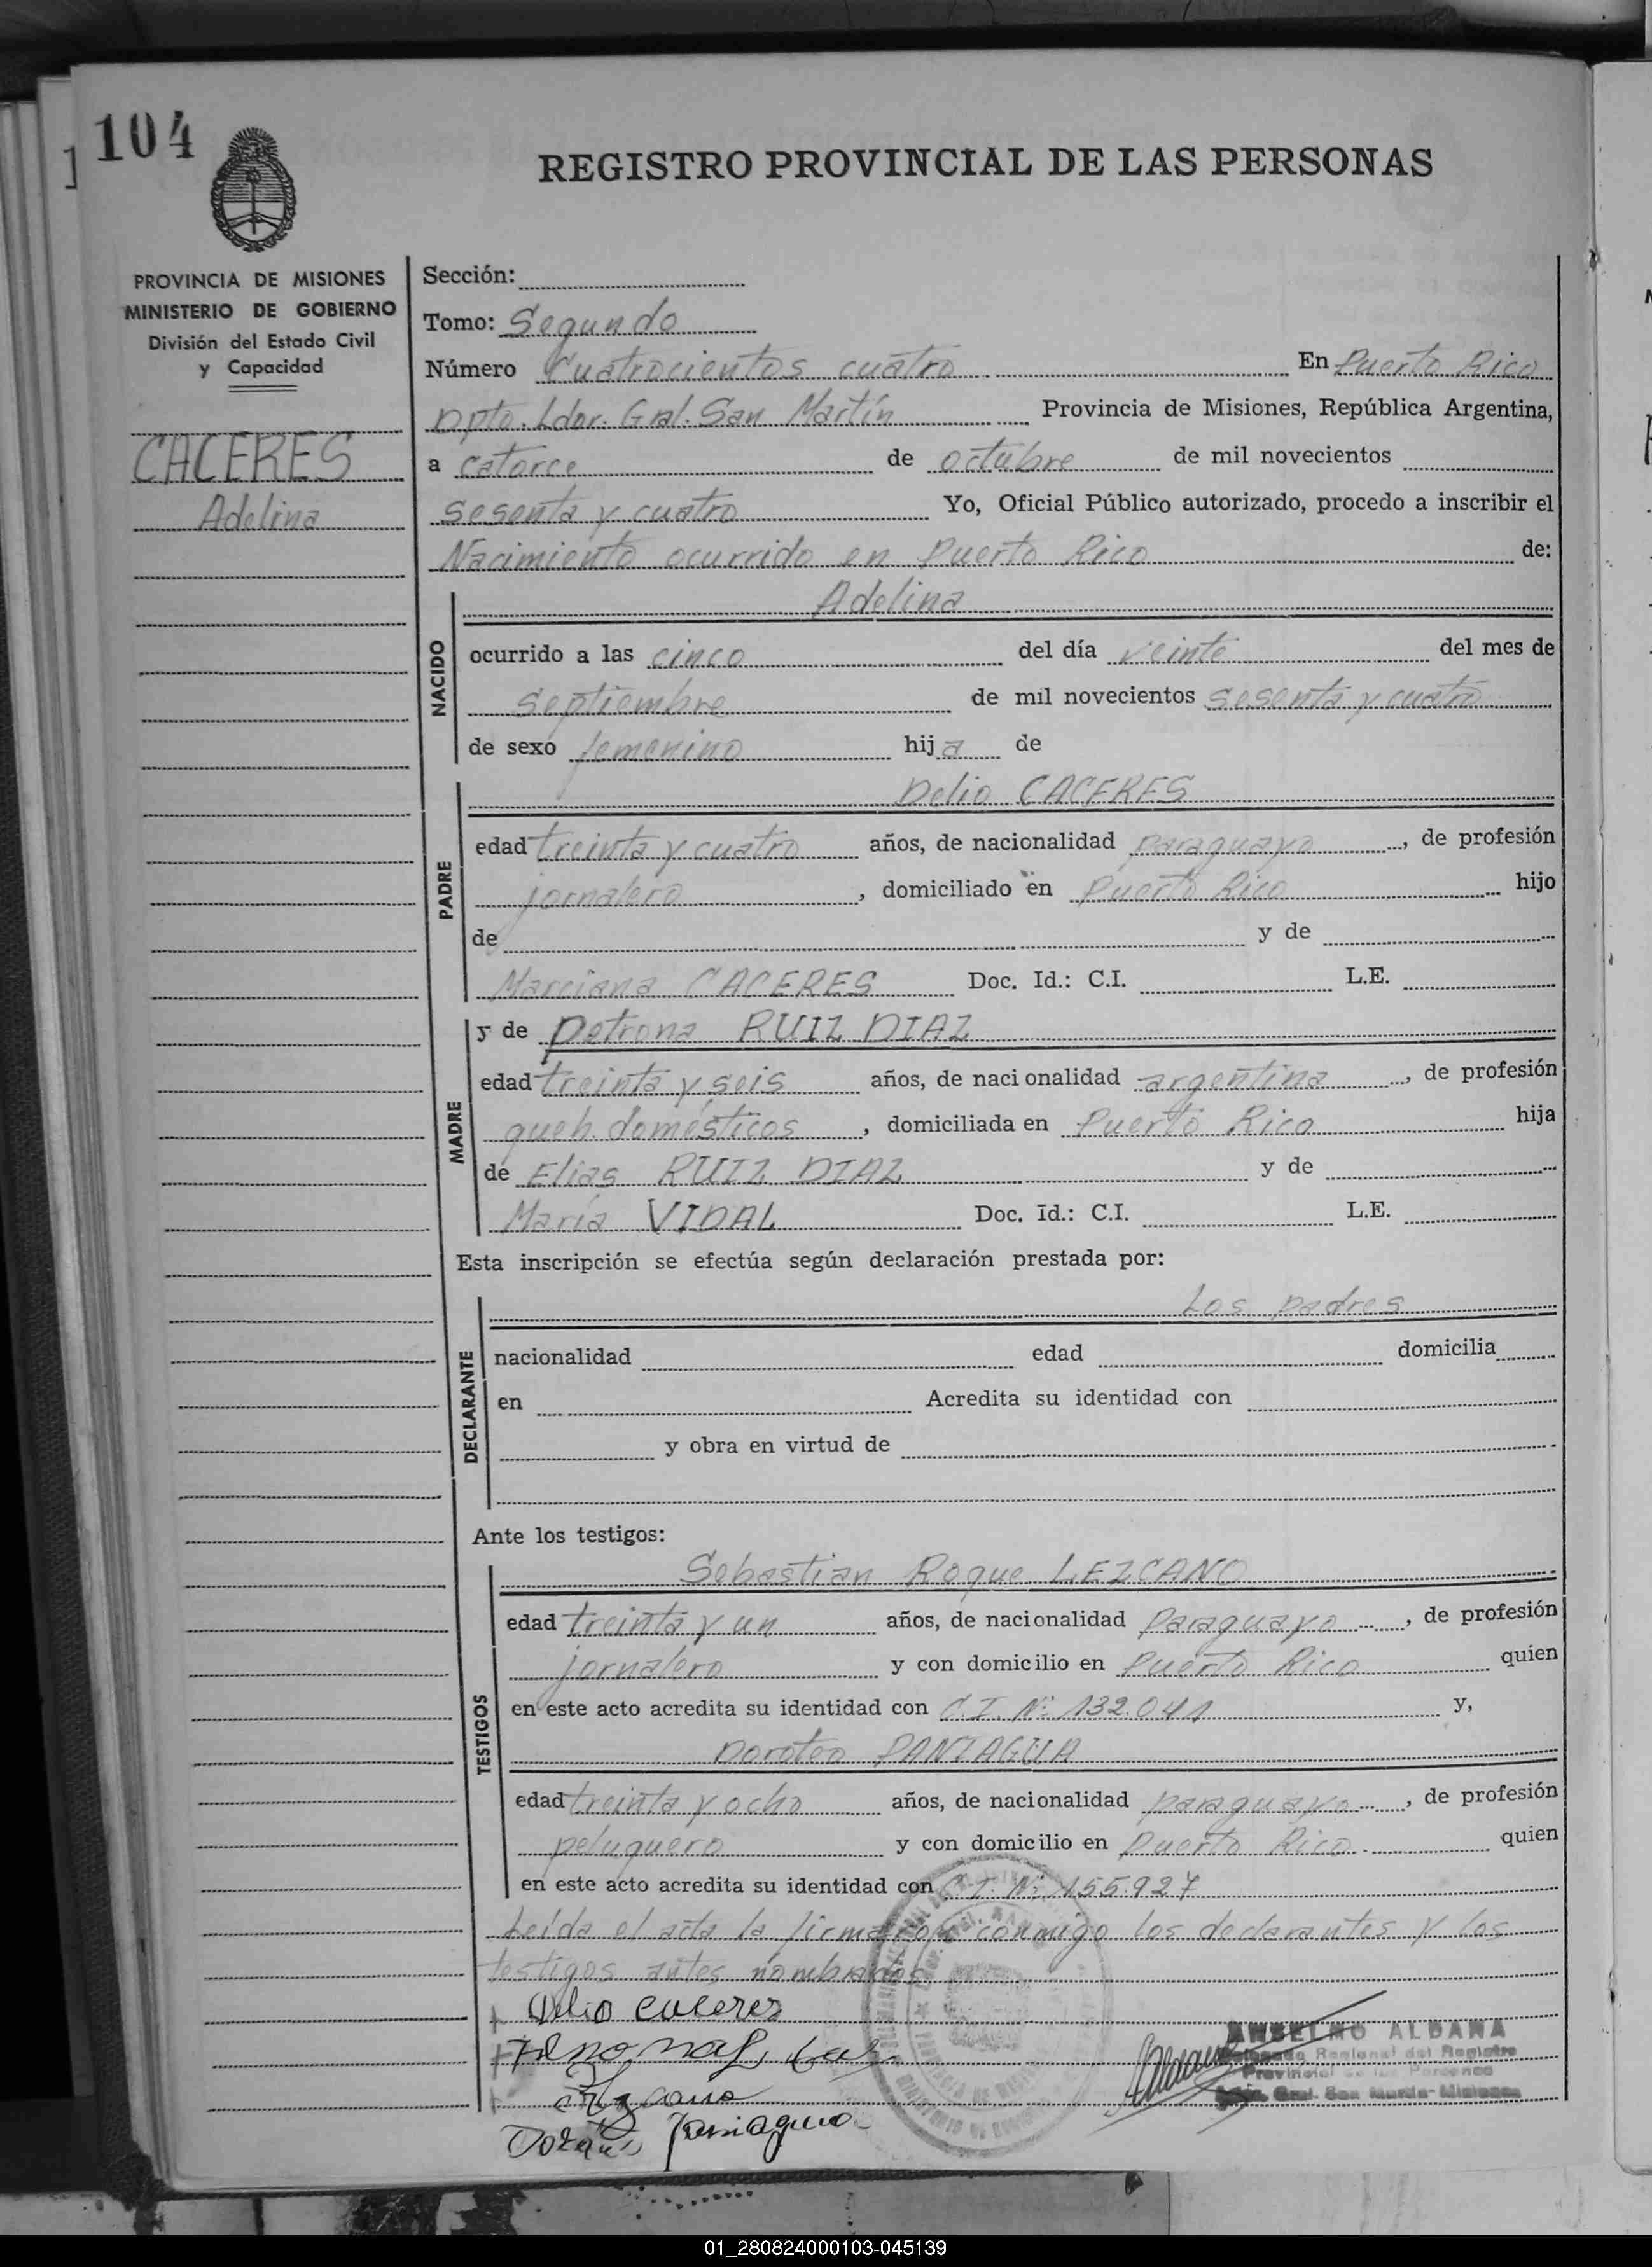 104
REGISTRO PROVINCIAL DE LAS PERSONAS
PROVINCIA DE MISIONES
MINISTERIO DE GOBIERNO
División del Estado Civil
y Capacidad
CACERES
Adelina
Sección:
Tomo: Segundo
Número Cuatrocientos cuatro En Puerto Rico
Dpto. Ldor. Gral. San Martín Provincia de Misiones, República Argentina,
a catorce de octubre de mil novecientos
sesenta y cuatro Yo, Oficial Público autorizado, procedo a inscribir el
Nacimiento ocurrido en Puerto Rico de:
NACIDO
Adelina
ocurrido a las cinco del día veinte del mes de
septiembre de mil novecientos sesenta y cuatro
de sexo femenino hija de
PADRE
Delio CACERES
edad treinta y cuatro años, de nacionalidad paraguayo, de profesión
jornalero, domiciliado en Puerto Rico hijo
de y de
Marciana CACERES Doc. Id.: C.I. L.E.
MADRE
y de Petrona RUIZ DIAZ
edad treinta y seis años, de nacionalidad argentina, de profesión
queh. domésticos, domiciliada en Puerto Rico hija
de Elías RUIZ DIAZ y de
María VIDAL Doc. Id.: C.I. L.E.
Esta inscripción se efectúa según declaración prestada por:
DECLARANTE
Los padres
nacionalidad edad domicilia
en Acredita su identidad con
y obra en virtud de
Ante los testigos:
TESTIGOS
Sebastian Roque LEZCANO
edad treinta y un años, de nacionalidad paraguayo, de profesión
jornalero y con domicilio en Puerto Rico quien
en este acto acredita su identidad con C.I. Nº 132.041 y,
Doroteo PANIAGUA
edad treinta y ocho años, de nacionalidad paraguayo, de profesión
peluquero y con domicilio en Puerto Rico quien
en este acto acredita su identidad con C.I. Nº 155.927
Leída el acta la firmaron conmigo los declarantes y los
testigos antes nombrados
Delio caceres
Lezcano
Paniagua
ANSELMO ALDANA
Delegado Regional del Registro
Provincial de las Personas
Gral. San Martín-Misiones
01_280824000103-045139